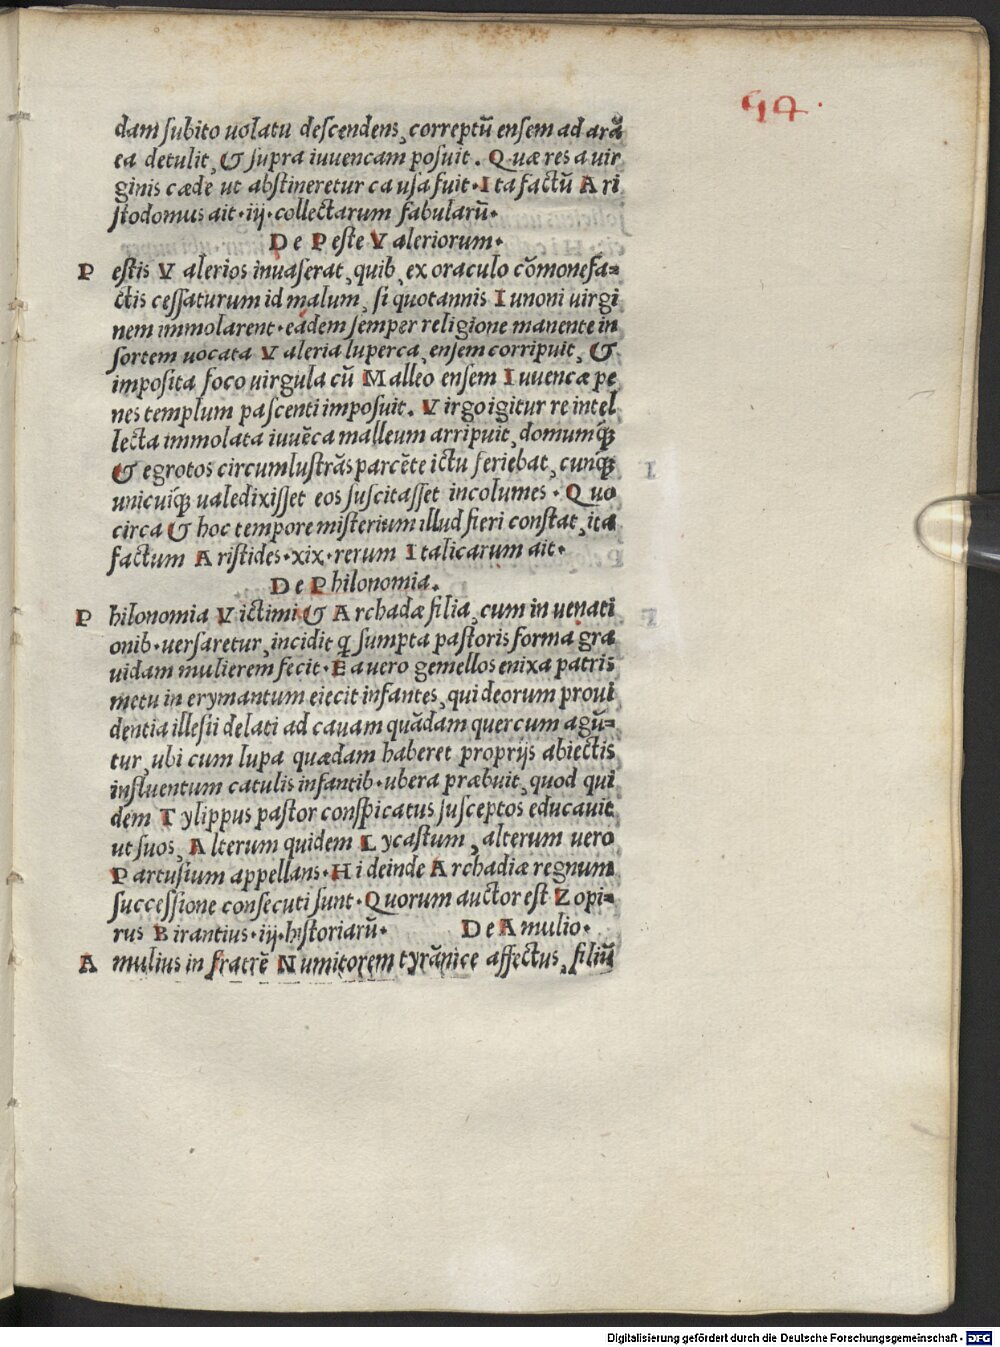 94.
dam subito uolatu descendens, correptū ensem ad arā
ea detulit, & supra iuuencam posuit. Quæ res a uir
ginis cæde ut abstineretur causa fuit. Ita factū Ari
stodomus ait. iij. collectarum fabularū.
De Peste Valeriorum.
Pestis Valerios inuaserat, quib, ex oraculo cōmonefa=
ctis cessaturum id malum, si quotannis Iunoni uirgi
nem immolarent. eadem semper religione manente in
sortem uocata Valeria luperca, ensem corripuit, &
imposita foco uirgula cū Malleo ensem Iuuencæ pe
nes templum pascenti imposuit. Virgo igitur re intel
lecta immolata iuuēca malleum arripuit, domumq́;
& egrotos circumlustrās parcēte ictu feriebat, cunq́;
unicuiq́; ualedixisset eos suscitasset incolumes. Quo
circa & hoc tempore misterium illud fieri constat, ita
factum Aristides. xix. rerum Italicarum ait.
De Philonomia.
Philonomia Victimi & Archadæ filia, cum in uenati
onib. uersaretur, incidit q̄ sumpta pastoris forma gra
uidam mulierem fecit. Ea uero gemellos enixa patris
metu in erymantum eiecit infantes, qui deorum proui
dentia illesii delati ad cauam quādam quercum agū=
tur, ubi cum lupa quædam haberet proprijs abiectis
influentum catulis infantib. ubera præbuit, quod qui
dem Tylippus pastor conspicatus susceptos educauit
ut suos, Alterum quidem Lycastum, alterum uero
Partusium appellans. Hi deinde Archadiæ regnum
successione consecuti sunt. Quorum auctor est Zopi=
rus Birantius. iij. historiarū. De Amulio.
Amulius in fratrē Numitorem tyrānice affectus, filiū
Digitalisierung gefördert durch die Deutsche Forschungsgemeinschaft - DFG